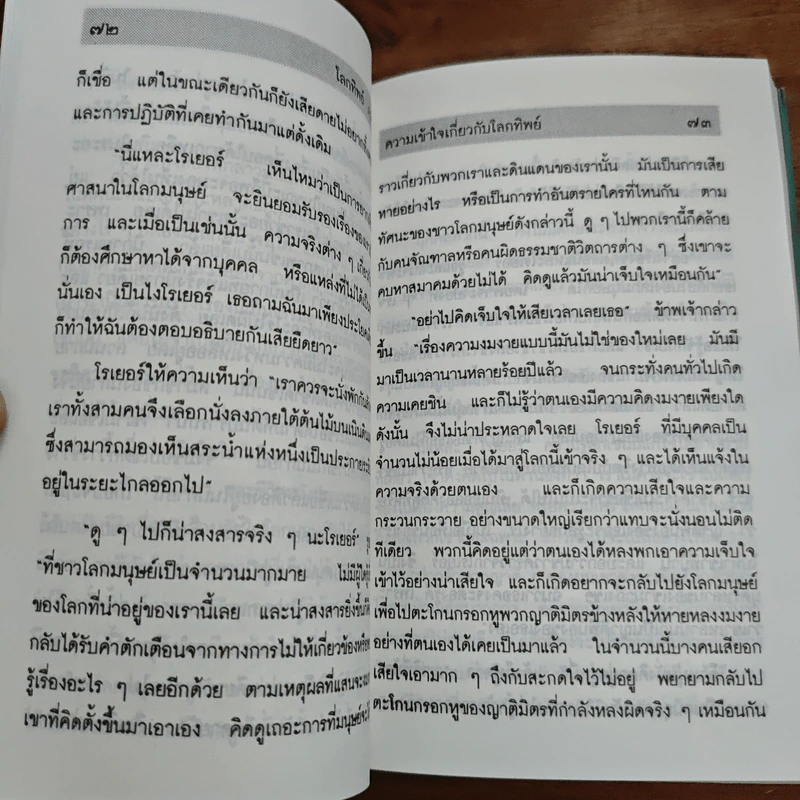 ๗๒
โลกทิพย์
ก็เชื่อ แต่ในขณะเดียวกันก็ยังเสียดายไม่อยาก
และการปฏิบัติที่เคยทำกันมาแต่ดั้งเดิม
"นี่แหละโรเยอร์ เห็นไหมว่าเป็นการยาก
ศาสนาในโลกมนุษย์ จะยินยอมรับรองเรื่องของ
การ และเมื่อเป็นเช่นนั้น ความจริงต่าง ๆ
ก็ต้องศึกษาหาได้จากบุคคล หรือแหล่งที่ไม่ได้
นั่นเอง เป็นไงโรเยอร์ เธอถามฉันมาเพียงประโยค
ก็ทำให้ฉันต้องตอบอธิบายกันเสียยืดยาว"
โรเยอร์ให้ความเห็นว่า "เราควรจะนั่งพักกัน
เราทั้งสามคนจึงเลือกนั่งลงภายใต้ต้นไม้บนเนิน
ซึ่งสามารถมองเห็นสระน้ำแห่งหนึ่งเป็นประกาย
อยู่ในระยะไกลออกไป"
"ดู ๆ ไปก็น่าสงสารจริง ๆ นะโรเยอร์"
"ที่ชาวโลกมนุษย์เป็นจำนวนมากมาย ไม่มีผู้ใด
ของโลกที่น่าอยู่ของเรานี้เลย และน่าสงสารยิ่งขึ้น
กลับได้รับคำตักเตือนจากทางการไม่ให้เกี่ยวข้อง
รู้เรื่องอะไร ๆ เลยอีกด้วย ตามเหตุผลที่แสนจะ
เขาที่คิดตั้งขึ้นมาเอาเอง คิดดูเถอะการที่มนุษย์
ความเข้าใจเกี่ยวกับโลกทิพย์ ๗๓
ราวเกี่ยวกับพวกเราและดินแดนของเรานั้น มันเป็นการเสีย
หายอย่างไร หรือเป็นการทำอันตรายใครที่ไหนกัน ตาม
ทัศนะของชาวโลกมนุษย์ดังกล่าวนี้ ดู ๆ ไปพวกเรานี้ก็คล้าย
กับคนจัณฑาลหรือคนผิดธรรมชาติวิตถารต่าง ๆ ซึ่งเขาจะ
คบหาสมาคมด้วยไม่ได้ คิดดูแล้วมันน่าเจ็บใจเหมือนกัน"
"อย่าไปคิดเจ็บใจให้เสียเวลาเลยเธอ" ข้าพเจ้ากล่าว
ขึ้น "เรื่องความงมงายแบบนี้มันไม่ใช่ของใหม่เลย มันมี
มาเป็นเวลานานหลายร้อยปีแล้ว จนกระทั่งคนทั่วไปเกิด
ความเคยชิน และก็ไม่รู้ว่าตนเองมีความคิดงมงายเพียงใด
ดังนั้น จึงไม่น่าประหลาดใจเลย โรเยอร์ ที่มีบุคคลเป็น
จำนวนไม่น้อยเมื่อได้มาสู่โลกนี้เข้าจริง ๆ และได้เห็นแจ้งใน
ความจริงด้วยตนเอง และก็เกิดความเสียใจและความ
กระวนกระวาย อย่างขนาดใหญ่เรียกว่าแทบจะนั่งนอนไม่ติด
ทีเดียว พวกนี้คิดอยู่แต่ว่าตนเองได้หลงพกเอาความเจ็บใจ
เข้าไว้อย่างน่าเสียใจ และก็เกิดอยากจะกลับไปยังโลกมนุษย์
เพื่อไปตะโกนกรอกหูพวกญาติมิตรข้างหลังให้หายหลงงมงาย
อย่างที่ตนเองได้เคยเป็นมาแล้ว ในจำนวนนี้บางคนเสียอก
เสียใจเอามาก ๆ ถึงกับสะกดใจไว้ไม่อยู่ พยายามกลับไป
ตะโกนกรอกหูของญาติมิตรที่กำลังหลงผิดจริง ๆ เหมือนกัน